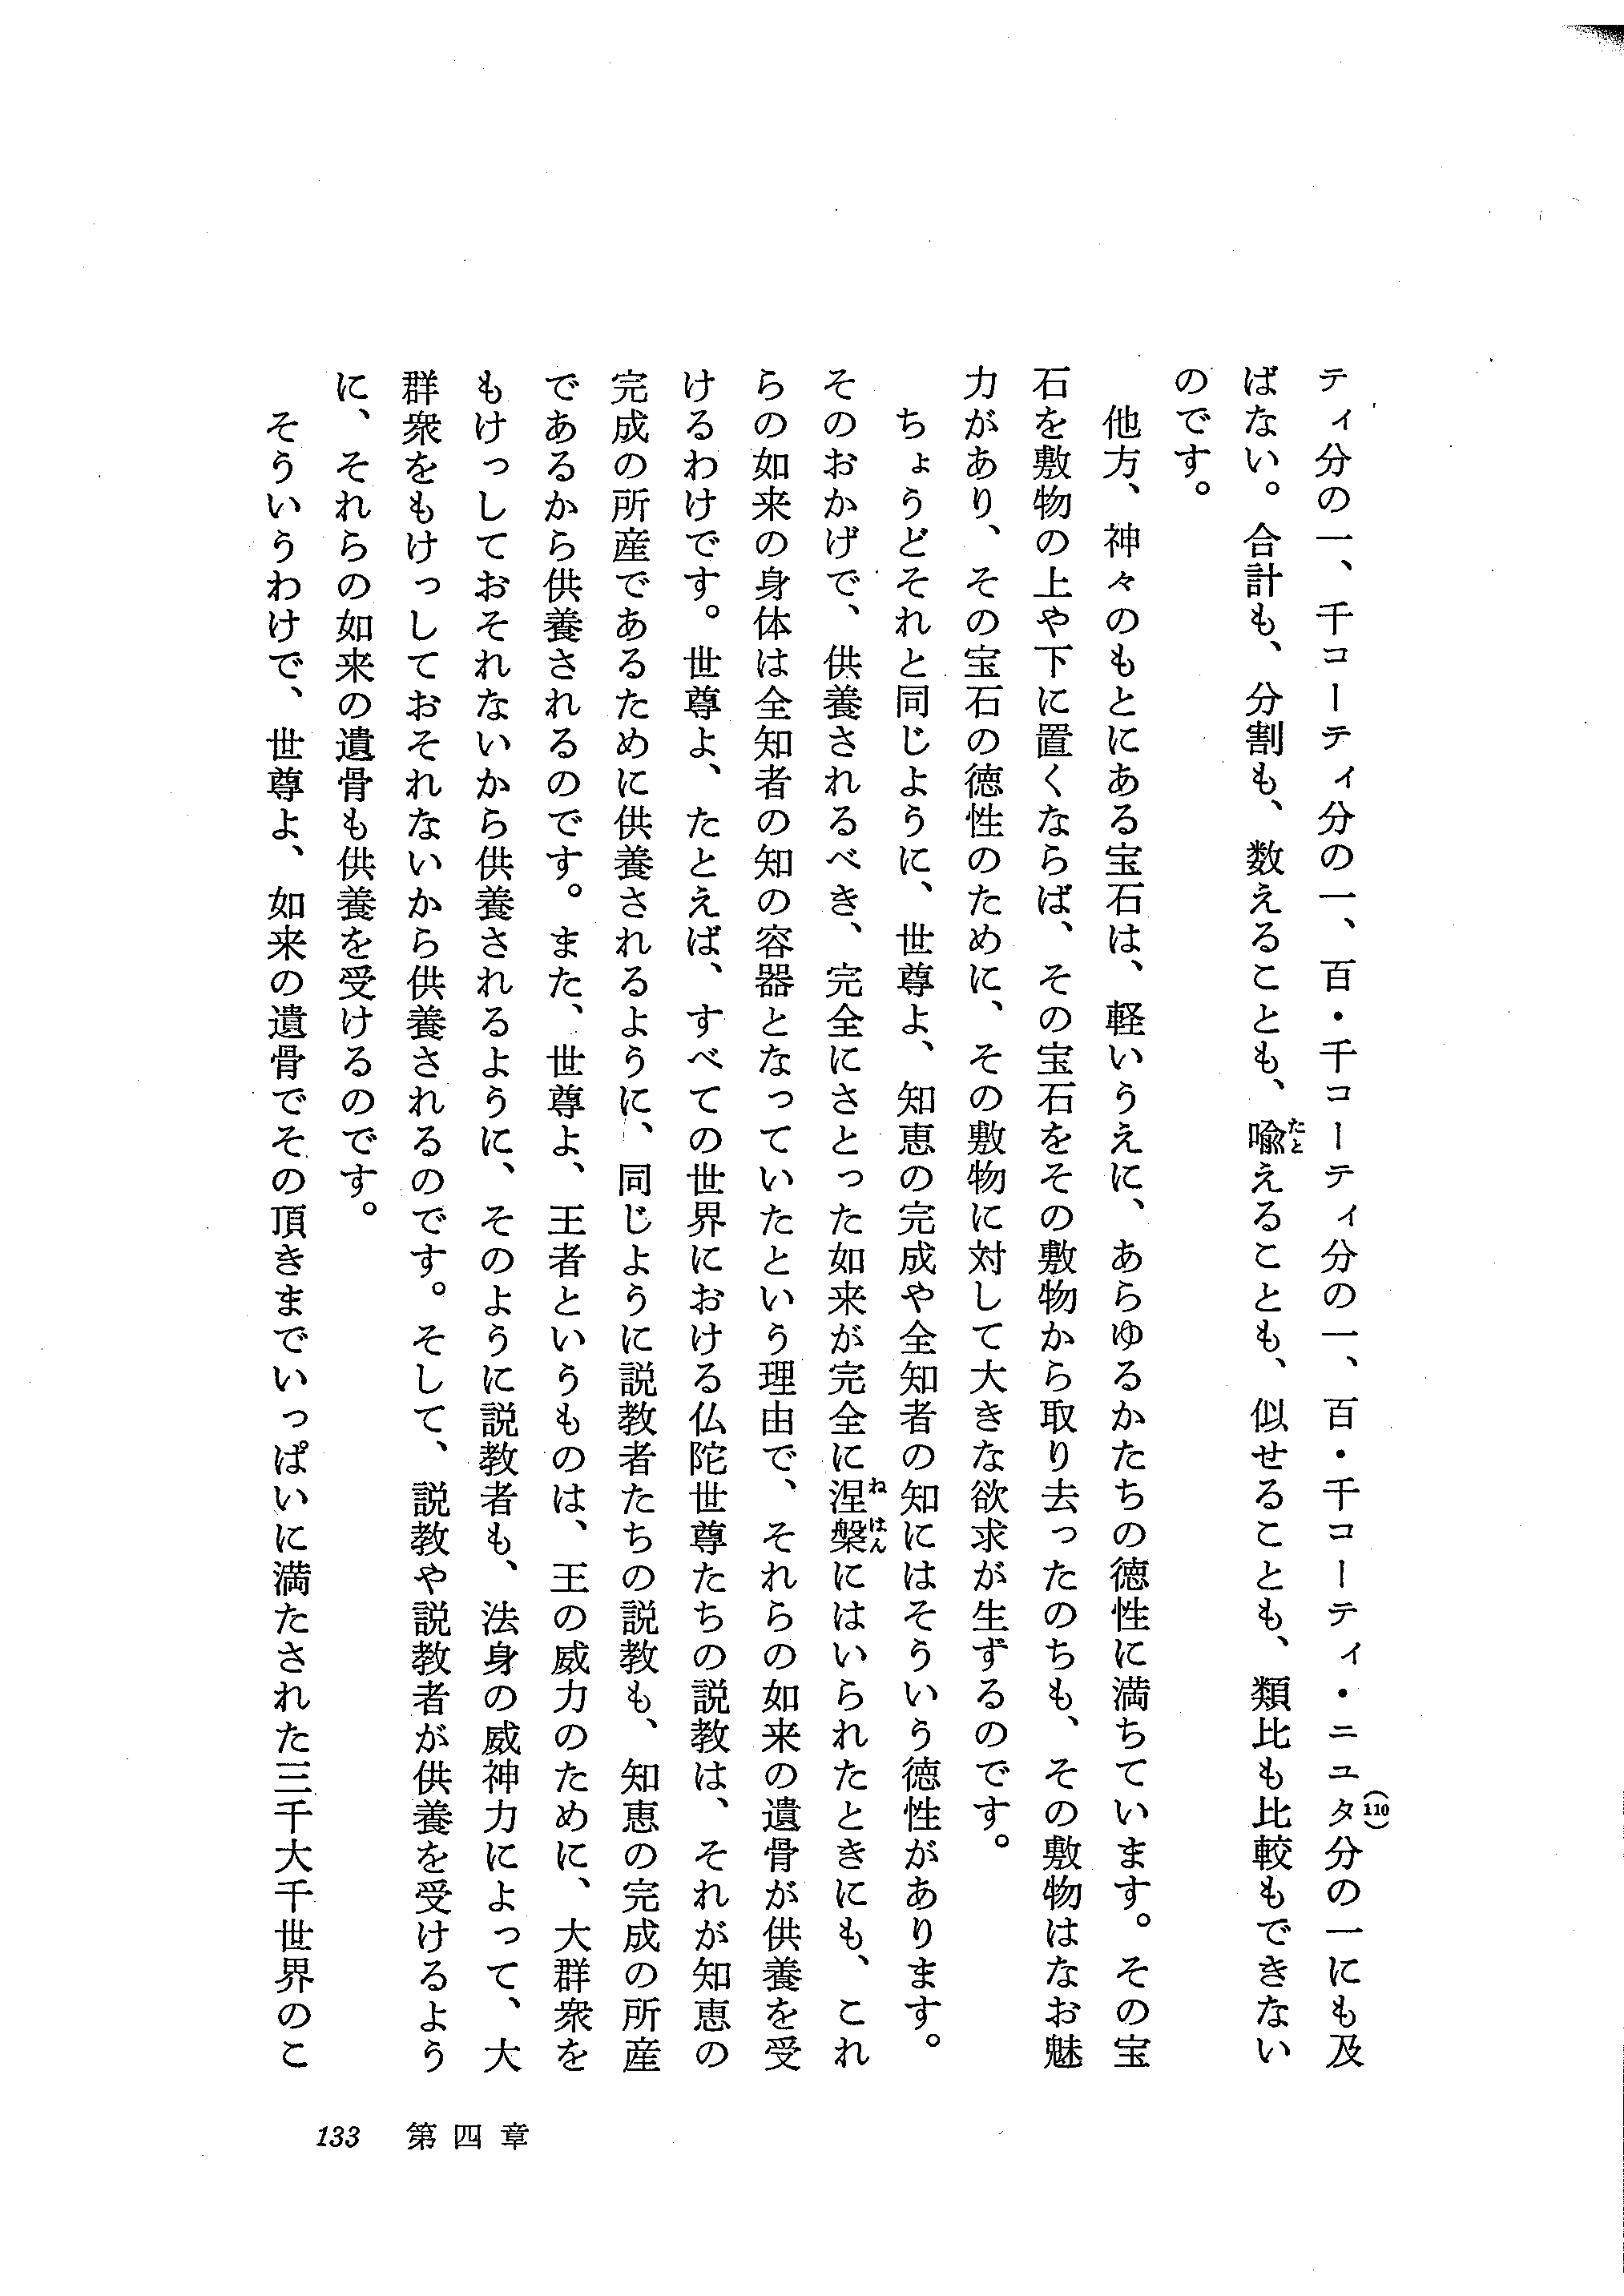 ティ分の一、千コーティ分の一、百・千コーティ分の一、百・千コーティ・ニユタ(110)分の一にも及
ばない。合計も、分割も、数えることも、喩えることも、似せることも、類比も比較もできない
のです。
他方、神々のもとにある宝石は、軽いうえに、あらゆるかたちの徳性に満ちています。その宝
石を敷物の上や下に置くならば、その宝石をその敷物から取り去ったのちも、その敷物はなお魅
力があり、その宝石の徳性のために、その敷物に対して大きな欲求が生ずるのです。
ちょうどそれと同じように、世尊よ、知恵の完成や全知者の知にはそういう徳性があります。
そのおかげで、供養されるべき、完全にさとった如来が完全に涅槃にはいられたときにも、これ
らの如来の身体は全知者の知の容器となっていたという理由で、それらの如来の遺骨が供養を受
けるわけです。世尊よ、たとえば、すべての世界における仏陀世尊たちの説教は、それが知恵の
完成の所産であるために供養されるように、同じように説教者たちの説教も、知恵の完成の所産
であるから供養されるのです。また、世尊よ、王者というものは、王の威力のために、大群衆を
もけっしておそれないから供養されるように、そのように説教者も、法身の威神力によって、大
群衆をもけっしておそれないから供養されるのです。そして、説教や説教者が供養を受けるよう
に、それらの如来の遺骨も供養を受けるのです。
そういうわけで、世尊よ、如来の遺骨でその頂きまでいっぱいに満たされた三千大千世界のこ
133 第四章